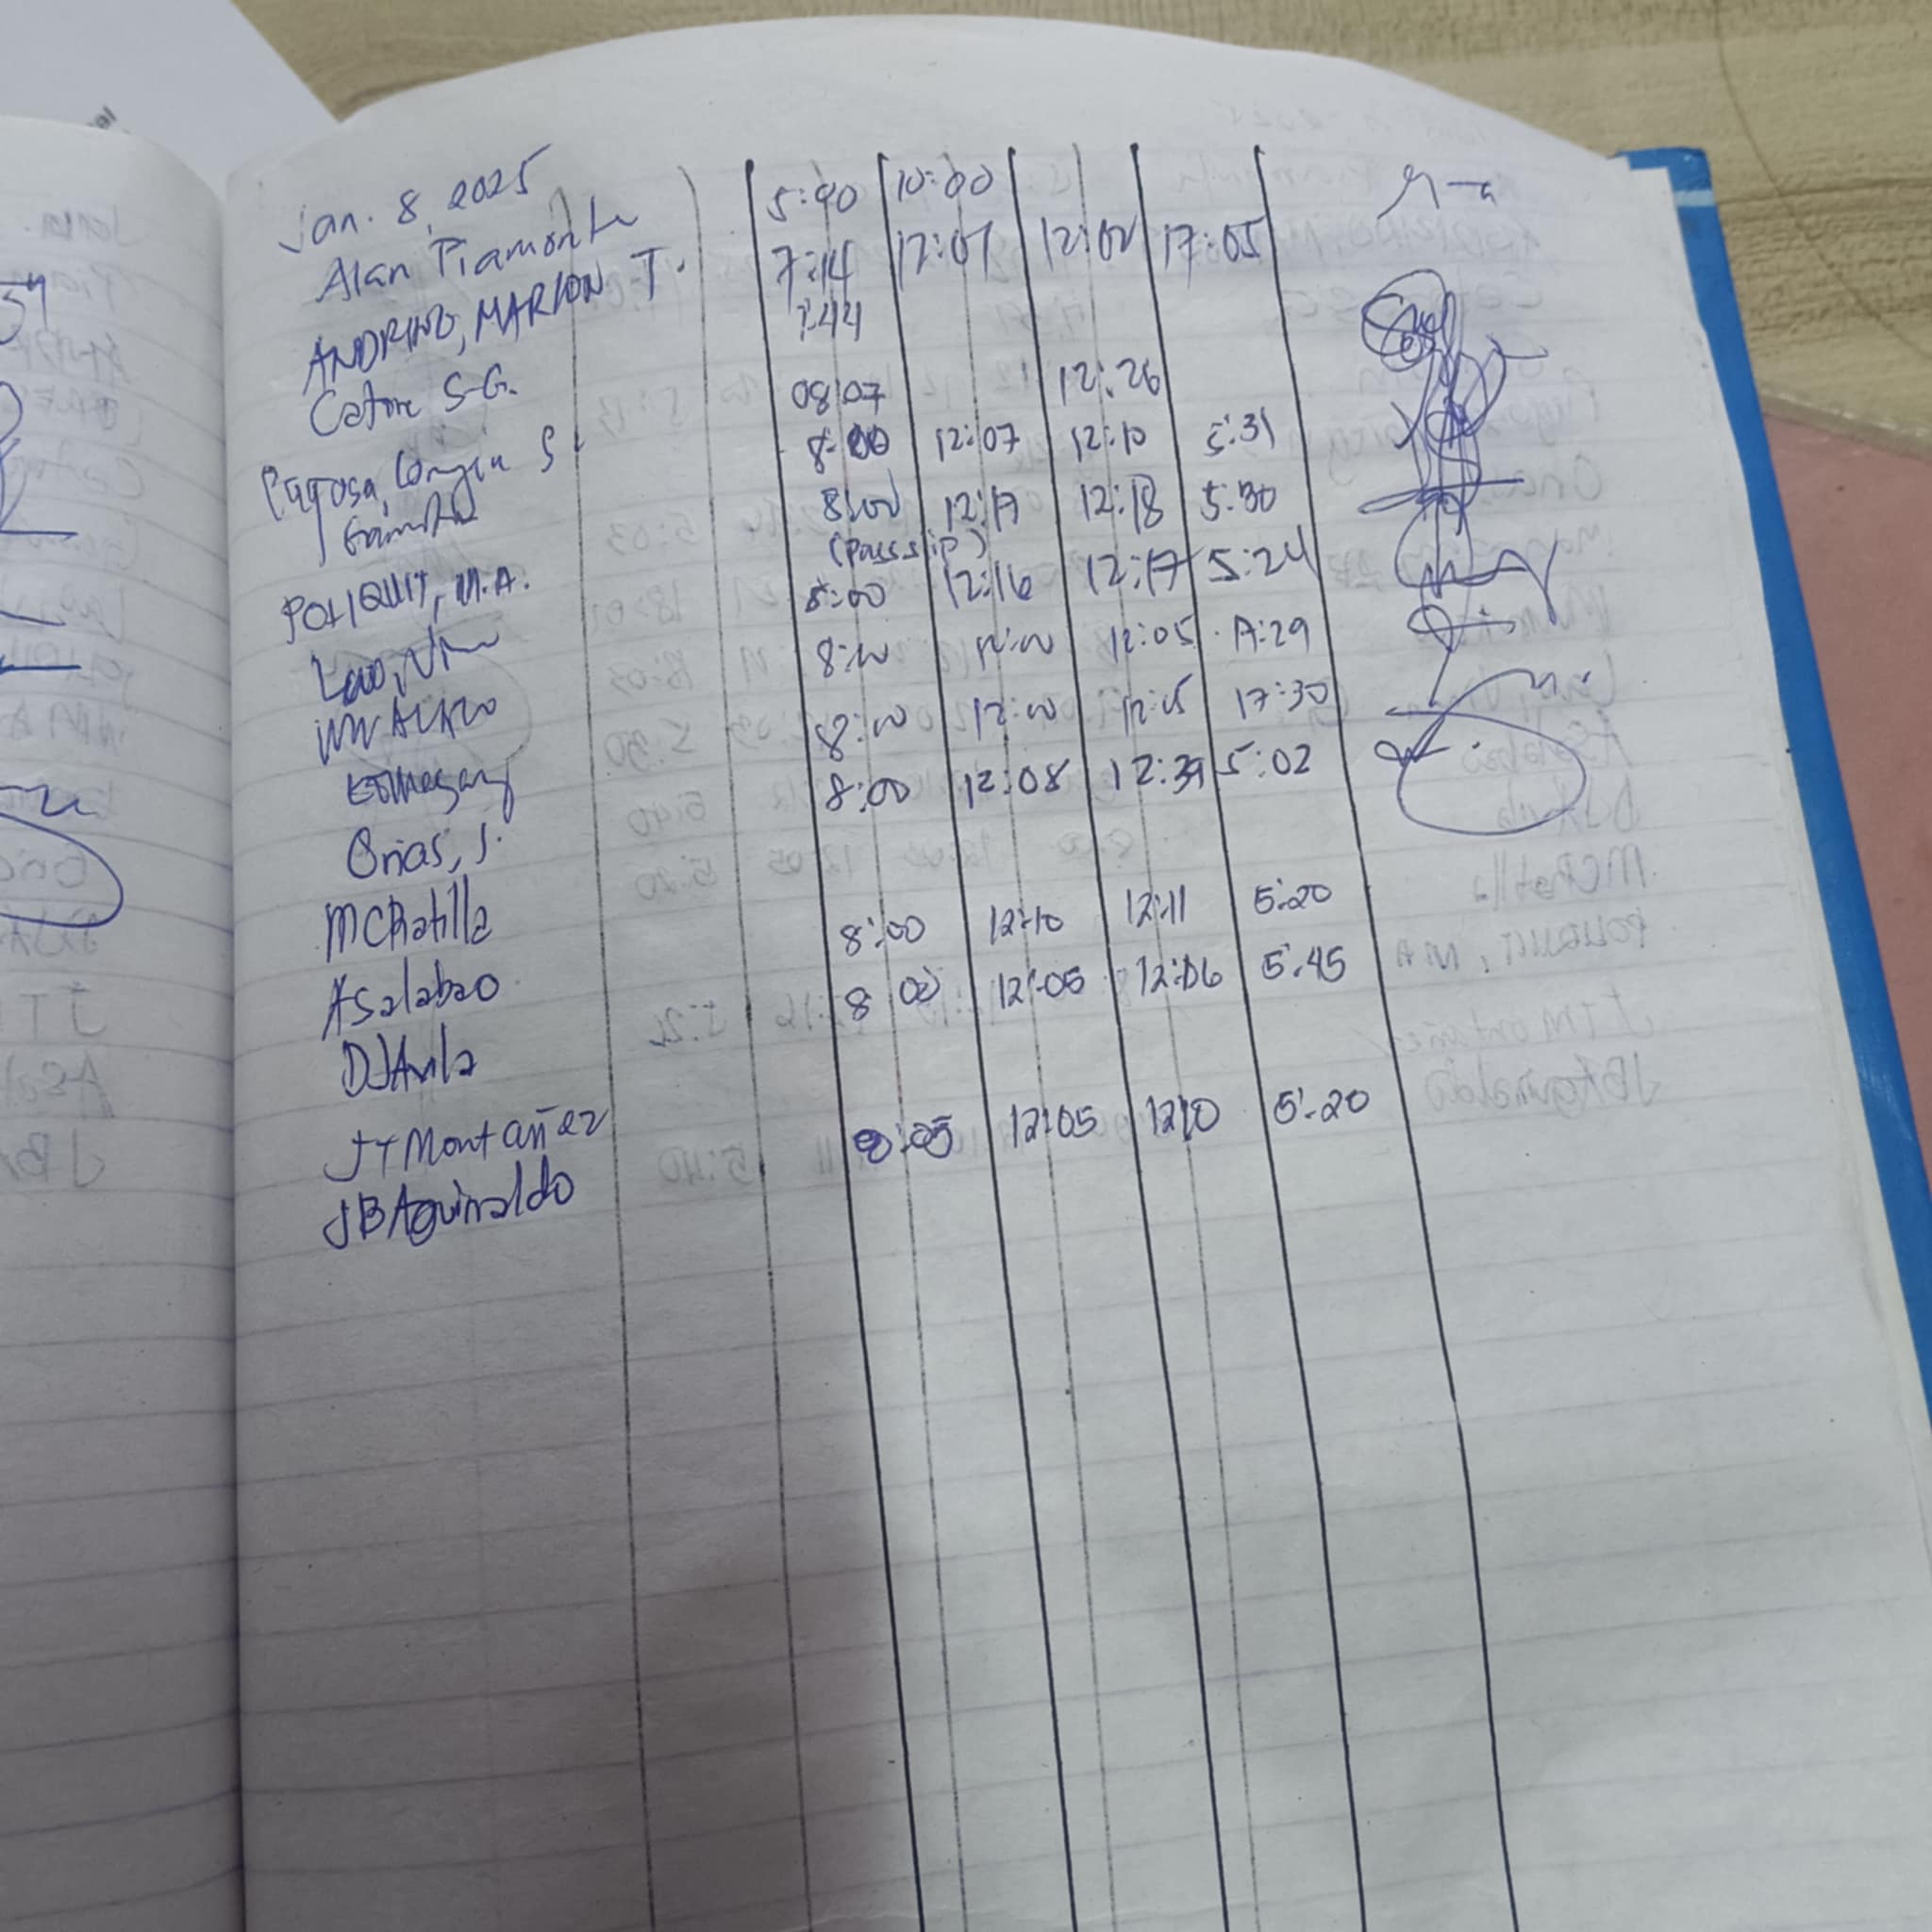 Jan. 8, 2025
Alan Piamonte 5:00 10:00
ANDRINO, MARLON T. 7:14 12:01 12:02 17:05
Catore S-G. 7:44
S. 08:07 12:26
8:00 12:07 12:10 5:31
POLIQUIT, M.A. 8:00 12:17 12:18 5:30
(pass slip)
Lao, 8:00 12:16 12:17 5:24
8:00 12:00 12:05 17:29
8:00 12:00 12:05 17:30
Onas, J. 8:00 12:08 12:39 5:02
MCRatilla
ASalabao 8:00 12:10 12:11 5:20
DJAvila 8 00 12:05 12:06 5:45
JTMontañez
JBAguinaldo 8:05 12:05 12:10 5:20